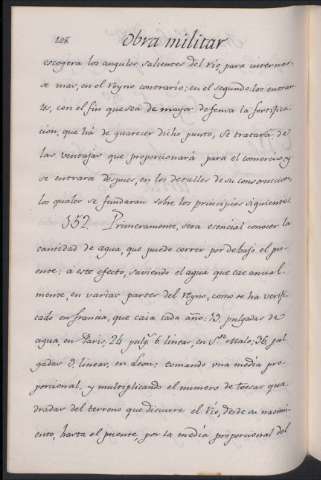 108 Obra militar
escogera los angulos salientes del rio, para internar
se mas, en el reyno contrario; en el segundo: los entran
tes, con el fin que sea de mayor defensa la fortifica
cion, que há de guarecer dicho punto, se tratará, de
las ventajas que proporcionará para el comercio, y
se entrara despues, en los detalles de su construccion
los quales se fundaran sobre los principios siguientes.
352. Primeramente, sera esencial conocer la
cantidad de agua, que puede correr por debajo el pu
ente; a este efecto, saviendo el agua que cae annual
mente, en varias partes del reyno, como se ha verifi
cado en francia, que caia cada año: 19, pulgadas de
agua, en Paris, 24 pulg.s 6 lineas, en Sn. Malo, 36, pul
gadas 9, lineas, en Leon; tomando una media pro
porcional, y multiplicando el numero de toesas qua
dradas del terreno que discurre el rio, desde su nacimi
ento, hasta el puente, por la media proporcional del